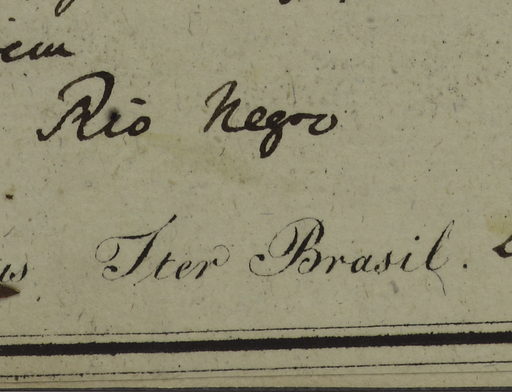 Rio Negro
Iter Brasil.